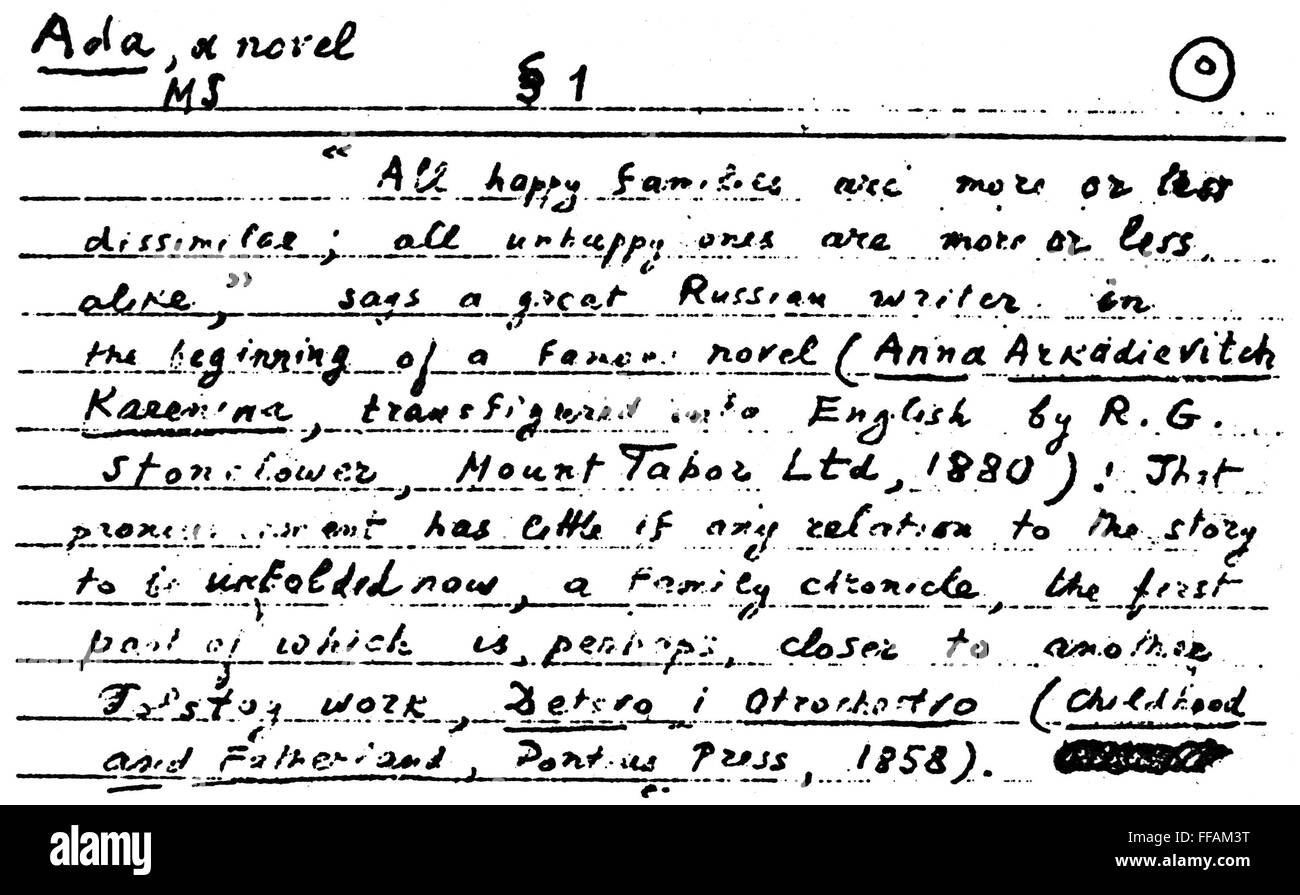 Ada, a novel
MS § 1
" All happy families are more or less
dissimilar; all unhappy ones are more or less
alike," says a great Russian writer in
the beginning of a famous novel (Anna Arkadievitch
Karenina, transfigured into English by R. G.
Stonelower, Mount Tabor Ltd, 1880). That
pronouncement has little if any relation to the story
to be unfolded now, a family chronicle, the first
part of which is, perhaps, closer to another
Tolstoy work, Detstvo i Otrochestvo (Childhood
and Fatherland, Pontius Press, 1858).
alamy
alamy stock photo
FFAM3T
www.alamy.com